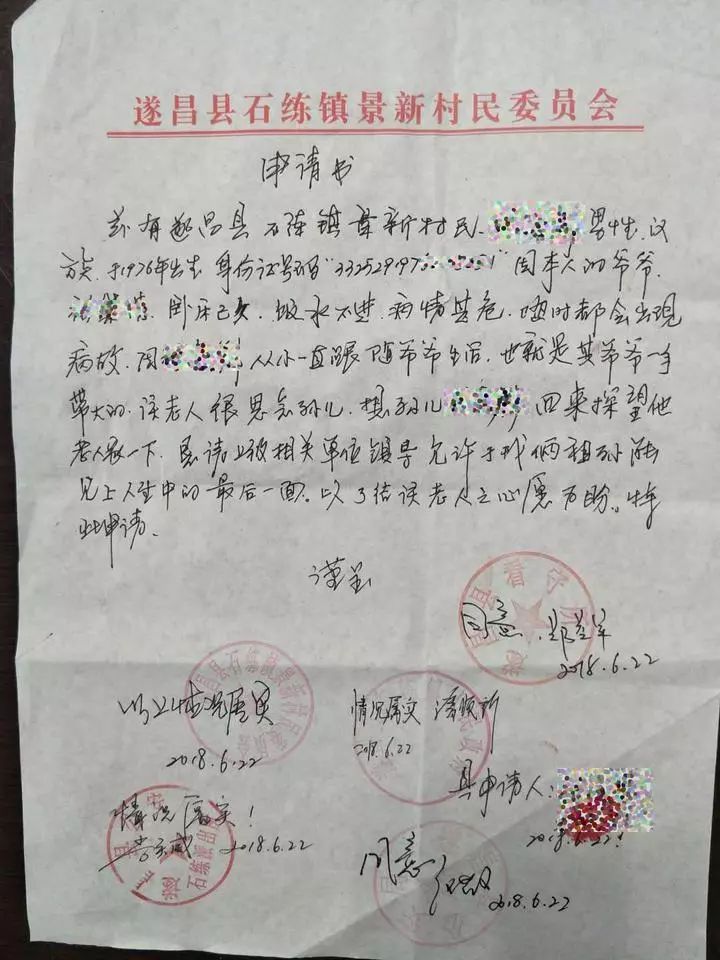 遂昌县石练镇景新村民委员会
申请书
兹有遂昌县石练镇景新村民 男性,汉
族,于1976年出生 身份证号码"332529197 51"因本人的爷爷
卧床已久,饭水不进,病情甚危,随时都会出现
病故,因 从小一直跟随爷爷生活,也就是其爷爷一手
带大的,该老人很思念孙儿,想孙儿 回来探望他
老人家一下,恳请上级相关单位领导允许于我俩祖孙能
见上人生中的最后一面。以了结该老人之心愿为盼。特
此申请。
谨呈
看守所
同意
2018.6.22
以上情况属实
2018.6.22
情况属实
2018.6.22
具申请人:
2018.6.22
情况属实!
2018.6.22
石练派出所
同意
2018.6.22